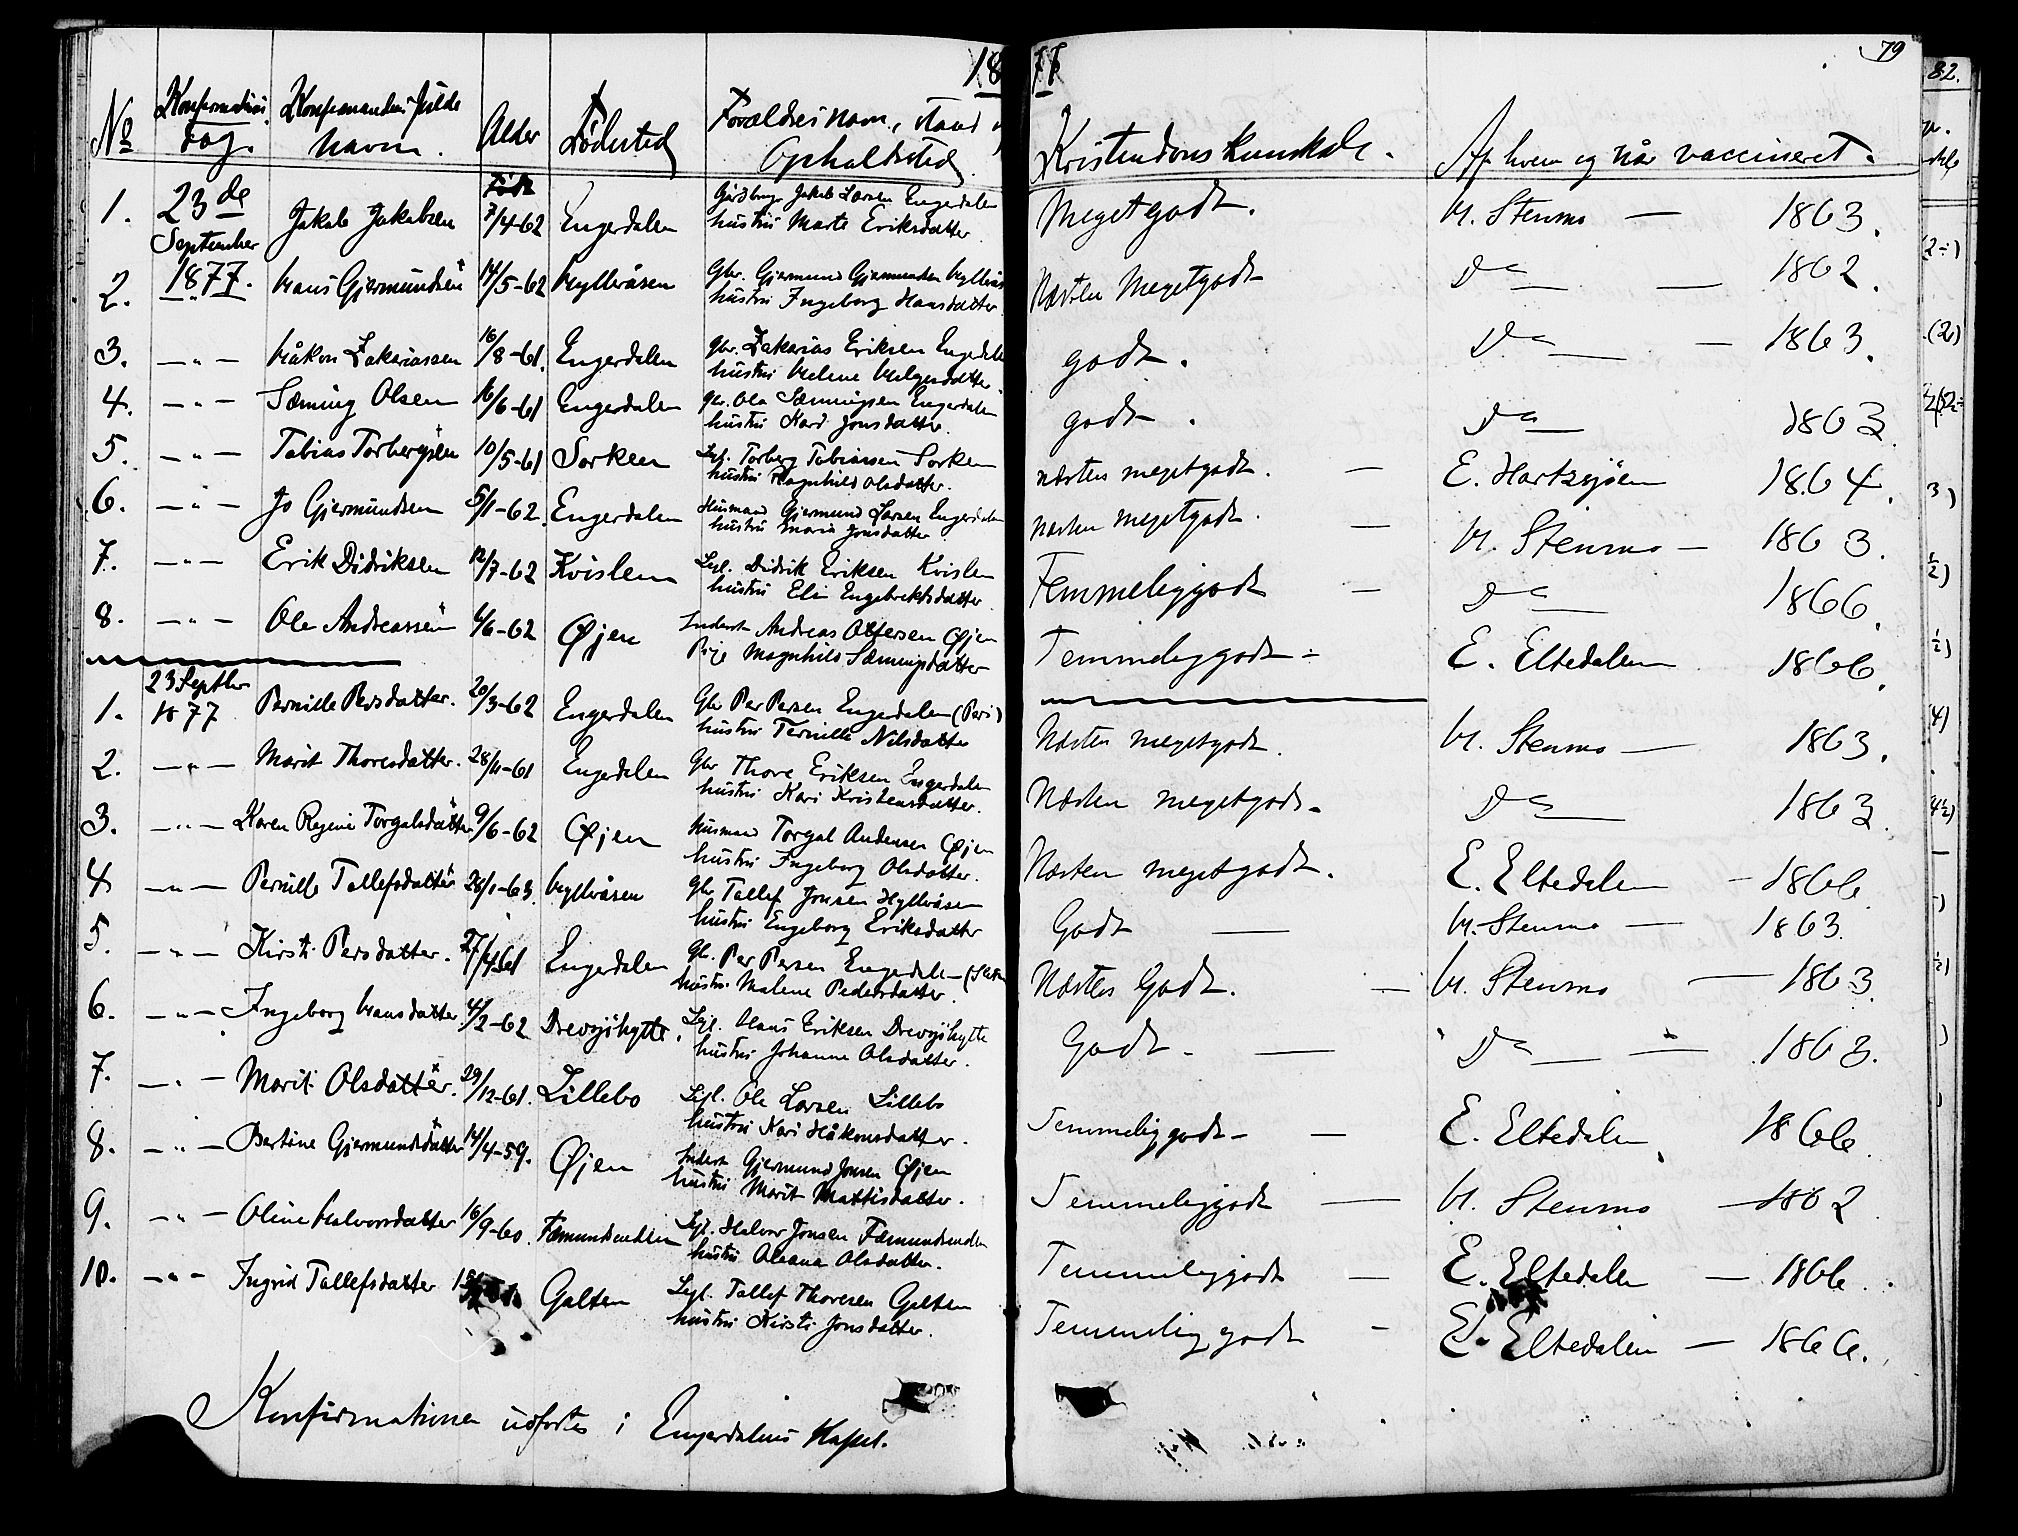 1877
79
82.
No Konfirmations dag. Konfirmandens fulde navn. Alder Fødested Forældres navn, stand Opholdssted Kristendomskundskab. Af hvem og når vaccineret.
Født
1. 23de September 1877. Jakob Jakobsen 7/4-62 Engerdalen Jakob Larsen Engerdalen
hustru Marte Eriksdatter Meget godt. H. Stenmo — 1863.
2. Hans Gjermundsen 14/5-62 Hylleråsen Gbr. Gjermund Gjermundsen
hustru Ingeborg Hansdatter Næsten Meget godt Do — 1862.
3. — " — Håkon Zakariassen 16/8-61. Engerdalen gbr. Zakarias Eriksen Engerdalen
hustru Helene Helgesdatter godt. Do — 1863.
4. — " — Sæming Olsen 16/6-61 Engerdalen gbr. Ola Sæmingsen Engerdalen
hustru Kari Jonsdatter. godt. Do 1863
5. — " — Tobias Torbergsen 10/5-61 Sorken Lejl. Torberg Tobiassen Sorken
hustru Ragnhild Olsdatter. næsten meget godt. — E. Hartzsjøen 1864.
6. — " — Jo Gjermundsen 5/1-62. Engerdalen Husmand Gjermund Larsen Engerdalen
hustru Maria Jonsdatter næsten meget godt. — H. Stenmo — 1863.
7. — " — Erik Didriksen 12/7-62 Kvislen Lejl. Didrik Eriksen Kvislen
hustru Eli Engebrektsdatter Temmelig godt — Do 1866.
8. — " — Ole Andreassen 4/6-62 Øjen Inderst Andreas Ottersen Øjen
Pige Magnhild Sæmingsdatter Temmelig godt — E. Eltedalen 1866.
1. 23 Septbr 1877 Pernille Persdatter. 20/3-62 Engerdalen Gbr Per Persen Engerdalen
hustru Pernille Nilsdatter Næsten meget godt. H. Stenmo — 1863.
2. — " — Marit Thoresdatter. 28/11-61 Engerdalen Gbr Thore Eriksen Engerdalen
hustru Kari Kristensdatter. Næsten meget godt — Do 1863.
3. — " — Karen Regine Torgalsdatter 9/6-62 Øjen Husmand Torgal Andersen Øjen
hustru Ingeborg Olsdatter. Næsten meget godt. E. Eltedalen — 1866
4 — " — Pernille Tallefsdatter 28/1-63. Hylleråsen Gbr Tallef Jonsen Hylleråsen
hustru Engeborg Eriksdatter Godt — H. Stenmo — 1863.
5. — " — Kirsti Persdatter. 27/4-61 Engerdalen Gbr. Per Persen Engerdalen
hustru Malene Pedersdatter. Næsten Godt. — H. Stenmo — 1863.
6. — " — Ingeborg Hansdatter. 4/2-62 Drevsjøhytte. Lejl. Hans Eriksen Drevsjøhytte
hustru Johanne Olsdatter. Godt. — Do — 1863.
7. — " — Marit Olsdatter. 29/12-61. Lillebo Lejl. Ole Larsen Lillebo
hustru Kari Håkonsdatter. Temmelig godt — E. Eltedalen 1866
8. — " — Bertine Gjermundsdatter 14/4-59. Øjen Inderst Gjermund Jonsen Øjen
hustru Marit Mattisdatter. Temmelig godt — H. Stenmo — 1862
9. — " — Oline Halvorsdatter 16/9-60. Fæmundsenden Lejl. Halvor Jonsen Fæmundsenden
hustru Oleana Olsdatter. Temmelig godt — E. Eltedalen — 1866.
10. — " — Ingrid Tallefsdatter Galten Lejl. Tallef Thoresen Galten
hustru Kirsti Jonsdatter. Temmelig godt — E. Eltedalen — 1866.
Konfirmationen udførtes i Engerdalens Kapel.